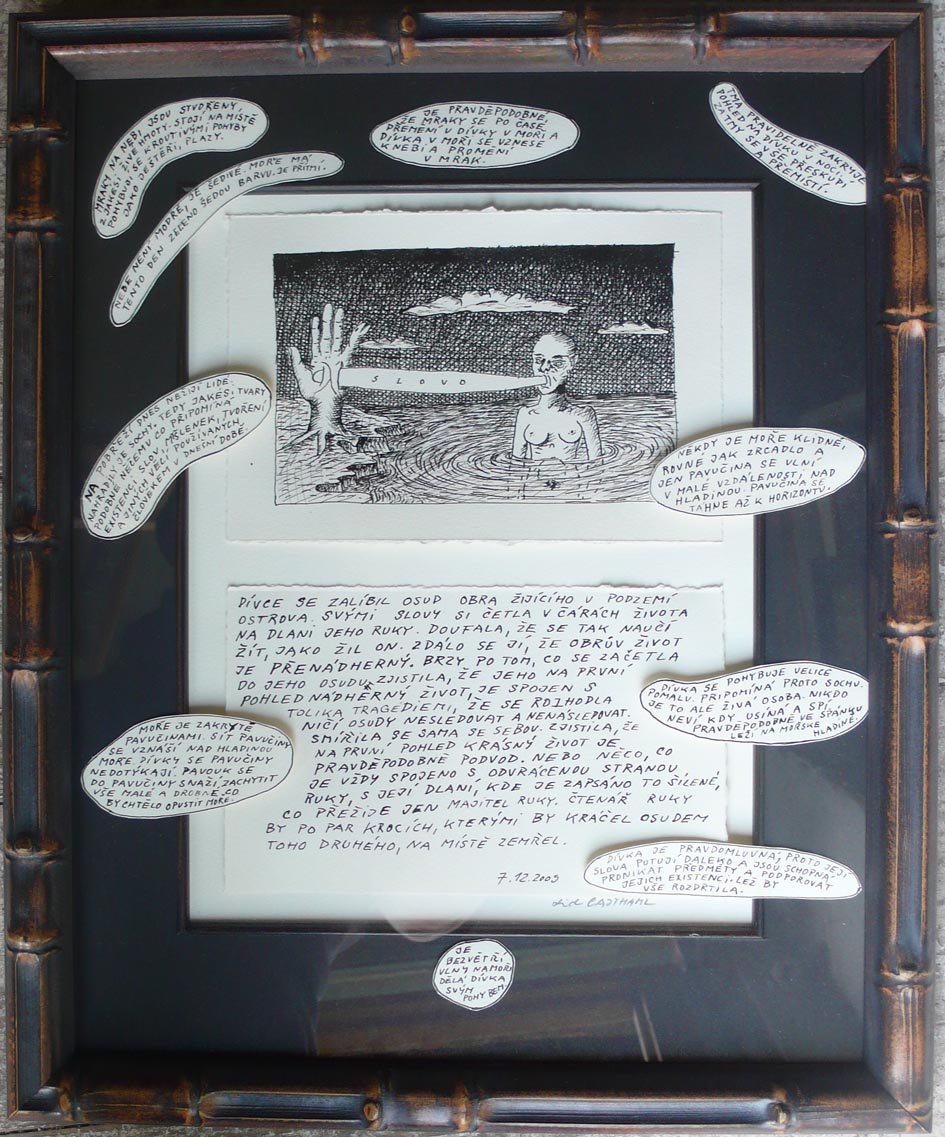 MRAKY, NA NEBI, JSOU STVOŘENY,
Z JAKÉSI ŽIVÉ HMOTY. STOJÍ NA MÍSTĚ
POHYBUJÍ SE KROUTIVÝMI POHYBY
JAKO JEŠTĚŘI, PLAZY.
NEBE NENÍ MODRÉ, JE ŠEDIVÉ. MOŘE MÁ
TENTO DEN ZELENO ŠEDOU BARVU. JE PŘÍTMÍ.
JE PRAVDĚPODOBNÉ,
ŽE MRAKY SE PO ČASE
PŘEMĚNÍ V DÍVKY V MOŘI A
DÍVKA V MOŘI SE VZNESE
K NEBI A PROMĚNÍ
V MRAK.
TMA PRAVIDELNĚ ZAKRÝJE
POHLED NA DÍVKU V NOCI.
ZA TMY SE VŠE PŘESKUPÍ
A PŘEMÍSTÍ.
SLOVO
NA POBŘEŽÍ DNES NEŽIJÍ LIDÉ.
NAHRADILY JE SOCHY, TEDY JAKÉSI TVARY
PODOBNÉ VŠEMU CO PŘIPOMÍNÁ
EXISTENCI, SLOV, MYŠLENEK, TVOŘENÍ
A JINÝCH VĚCÍ POUŽÍVANÝCH,
ČLOVĚKEM V DNEŠNÍ DOBĚ.
NĚKDY JE MOŘE KLIDNÉ,
ROVNÉ JAK ZRCADLO A
JEN PAVUČINA SE VLNÍ,
V MALÉ VZDÁLENOSTI, NAD
HLADINOU. PAVUČINA SE
TÁHNE AŽ K HORIZONTU.
DÍVCE SE ZALÍBIL OSUD OBRA ŽIJÍCÍHO V PODZEMÍ
OSTROVA. SVÝMI SLOVY SI ČETLA V ČARÁCH ŽIVOTA
NA DLANI JEHO RUKY. DOUFALA, ŽE SE TAK NAUČÍ
ŽÍT, JAKO ŽIL ON. ZDÁLO SE JÍ, ŽE OBRŮV ŽIVOT
JE PŘENÁDHERNÝ. BRZY PO TOM, CO SE ZAČETLA
DO JEHO OSUDU, ZJISTILA, ŽE JEHO NA PRVNÍ
POHLED NÁDHERNÝ ŽIVOT, JE SPOJEN S
TOLIKA TRAGEDIEMI, ŽE SE ROZHODLA
NIČÍ OSUDY NESLEDOVAT A NENÁSLEPOVAT.
SMÍŘILA SE SAMA SE SEBOU. ZJISTILA, ŽE
NA PRVNÍ POHLED KRÁSNÝ ŽIVOT JE
PRAVDĚPODOBNĚ PODVOD. NEBO NĚCO, CO
JE VŽDY SPOJENO S ODVRÁCENOU STRANOU
RUKY, S JEJÍ DLANÍ, KDE JE ZAPSÁNO TO ŠÍLENÉ,
CO PŘEŽIJE JEN MAJITEL RUKY. ČTENÁŘ RUKY
BY PO PÁR KROCÍCH, KTERÝMI BY KRÁČEL OSUDEM
TOHO DRUHÉHO, NA MÍSTĚ ZEMŘEL.
7.12.2009
DÍVKA SE POHYBUJE VELICE
POMALU. PŘIPOMÍNÁ PROTO SOCHU.
JE TO ALE ŽIVÁ OSOBA. NIKDO
NEVÍ KDY USÍNÁ A SPÍ.
PRAVDĚPODOBNĚ VE SPÁNKU
LEŽÍ NA MOŘSKÉ HLADINĚ.
MOŘE JE ZAKRYTÉ
PAVUČINAMI. SÍŤ PAVUČINY
SE VZNÁŠÍ NAD HLADINOU
MOŘE. DÍVKY SE PAVUČINY
NEDOTÝKAJÍ. PAVOUK SE
DO PAVUČINY SNAŽÍ ZACHYTIT
VŠE MALÉ A DROBNÉ, CO
BY CHTĚLO OPUSTIT MOŘE.
DÍVKA JE PRAVDOMLUVNÁ, PROTO JEJÍ
SLOVA PUTUJÍ DALEKO A JSOU SCHOPNÁ
PRONIKAT PŘEDMĚTY A PODPOROVAT
JEJICH EXISTENCI. LEŽ BY
VŠE ROZDRTILA.
JE
BEZVĚTŘÍ
VLNY NA MOŘI
DĚLÁ DÍVKA
SVÝM
POHYBEM.